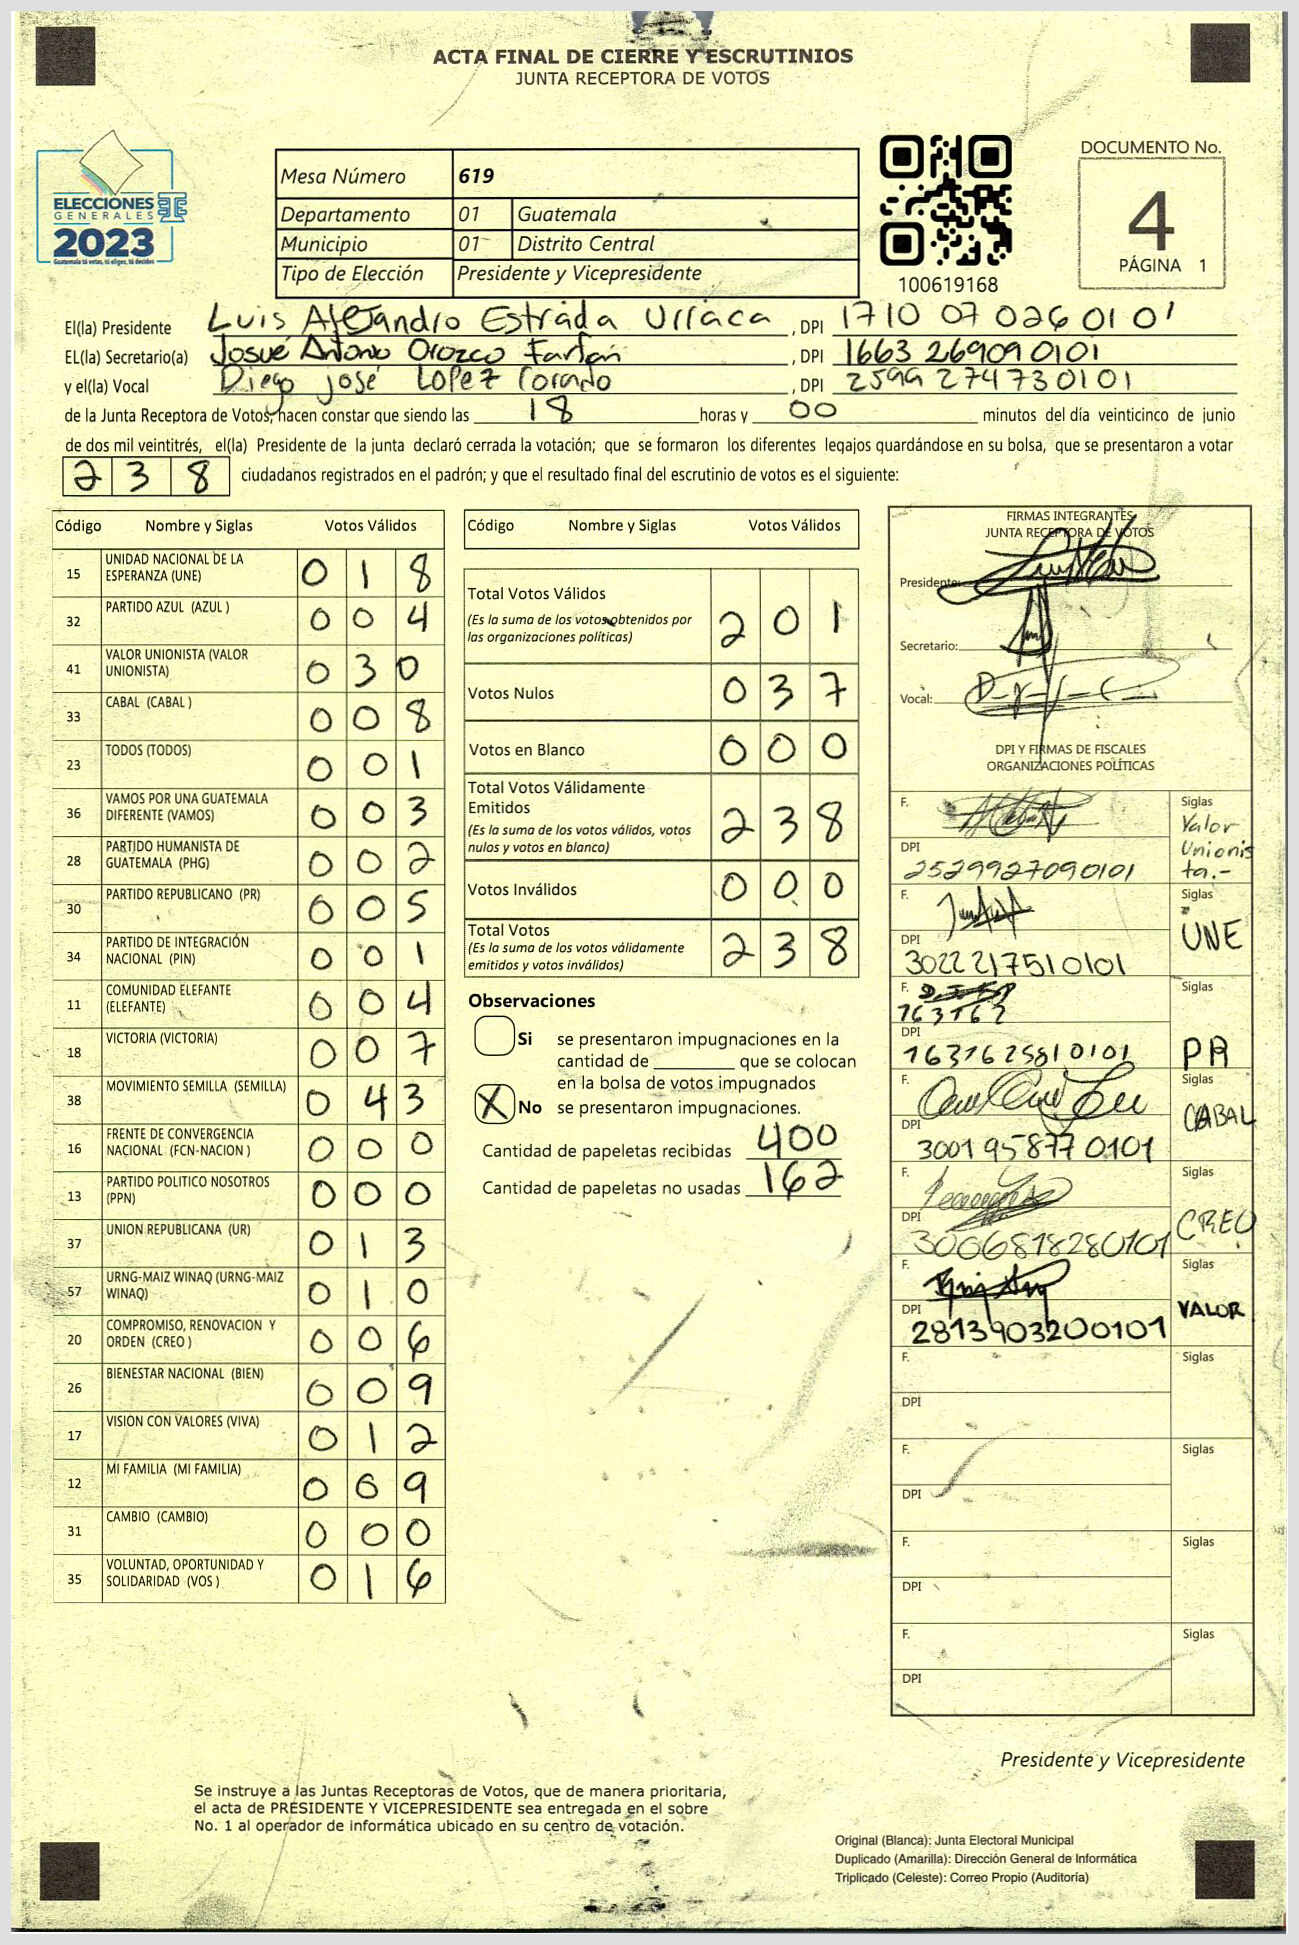 ACTA FINAL DE CIERRE Y ESCRUTINIOS
JUNTA RECEPTORA DE VOTOS
ELECCIONES
GENERALES
2023
Guatemala tú votas, tú eliges, tú decides
Mesa Número 619
Departamento 01 Guatemala
Municipio 01 Distrito Central
Tipo de Elección Presidente y Vicepresidente
100619168
DOCUMENTO No.
4
PÁGINA 1
El(la) Presidente Luis Alejandro Estrada Urraca , DPI 1710 07026 0101
EL(la) Secretario(a) Josué Antonio Orozco Farfán , DPI 1663 269090101
y el(la) Vocal Diego José López Corado , DPI 2599 274730101
de la Junta Receptora de Votos, hacen constar que siendo las 18 horas y 00 minutos del día veinticinco de junio
de dos mil veintitrés, el(la) Presidente de la junta declaró cerrada la votación; que se formaron los diferentes legajos quardándose en su bolsa, que se presentaron a votar
238 ciudadanos registrados en el padrón; y que el resultado final del escrutinio de votos es el siguiente:
Código Nombre y Siglas Votos Válidos
15 UNIDAD NACIONAL DE LA ESPERANZA (UNE) 018
32 PARTIDO AZUL (AZUL ) 004
41 VALOR UNIONISTA (VALOR UNIONISTA) 030
33 CABAL (CABAL ) 008
23 TODOS (TODOS) 001
36 VAMOS POR UNA GUATEMALA DIFERENTE (VAMOS) 003
28 PARTIDO HUMANISTA DE GUATEMALA (PHG) 002
30 PARTIDO REPUBLICANO (PR) 005
34 PARTIDO DE INTEGRACIÓN NACIONAL (PIN) 001
11 COMUNIDAD ELEFANTE (ELEFANTE) 004
18 VICTORIA (VICTORIA) 007
38 MOVIMIENTO SEMILLA (SEMILLA) 043
16 FRENTE DE CONVERGENCIA NACIONAL (FCN-NACION ) 000
13 PARTIDO POLITICO NOSOTROS (PPN) 000
37 UNION REPUBLICANA (UR) 013
57 URNG-MAIZ WINAQ (URNG-MAIZ WINAQ) 010
20 COMPROMISO, RENOVACION Y ORDEN (CREO ) 006
26 BIENESTAR NACIONAL (BIEN) 009
17 VISION CON VALORES (VIVA) 012
12 MI FAMILIA (MI FAMILIA) 009
31 CAMBIO (CAMBIO) 000
35 VOLUNTAD, OPORTUNIDAD Y SOLIDARIDAD (VOS ) 016
Código Nombre y Siglas Votos Válidos
Total Votos Válidos 201
(Es la suma de los votos obtenidos por
las organizaciones políticas)
Votos Nulos 037
Votos en Blanco 000
Total Votos Válidamente
Emitidos 238
(Es la suma de los votos válidos, votos
nulos y votos en blanco)
Votos Inválidos 000
Total Votos 238
(Es la suma de los votos válidamente
emitidos y votos inválidos)
Observaciones
Si se presentaron impugnaciones en la
cantidad de ________ que se colocan
en la bolsa de votos impugnados
X No se presentaron impugnaciones.
Cantidad de papeletas recibidas 400
Cantidad de papeletas no usadas 162
FIRMAS INTEGRANTES
JUNTA RECEPTORA DE VOTOS
Presidente:
Secretario:
Vocal:
DPI Y FIRMAS DE FISCALES
ORGANIZACIONES POLÍTICAS
F. Siglas Valor
Unionis
ta.-
DPI 2529927090101
F. Siglas UNE
DPI 3022217510101
F. 763162 Siglas
DPI 1631625810101 PR
F. Siglas CABAL
DPI 3001958770101
F. Siglas CREO
DPI 3006818280101
F. Siglas VALOR
DPI 2813903200101
F. Siglas
DPI
F. Siglas
DPI
F. Siglas
DPI
F. Siglas
DPI
Presidente y Vicepresidente
Se instruye a las Juntas Receptoras de Votos, que de manera prioritaria,
el acta de PRESIDENTE Y VICEPRESIDENTE sea entregada en el sobre
No. 1 al operador de informática ubicado en su centro de votación.
Original (Blanca): Junta Electoral Municipal
Duplicado (Amarilla): Dirección General de Informática
Triplicado (Celeste): Correo Propio (Auditoría)